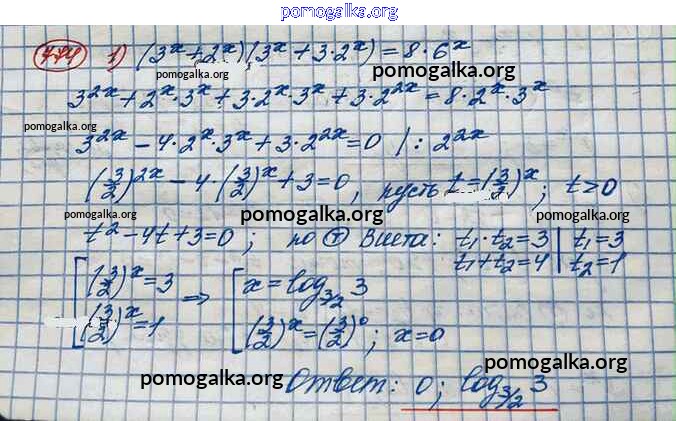 pomogalka.org
474 1) (3^x + 2^x)(3^x + 3·2^x) = 8·6^x
pomogalka.org pomogalka.org
3^{2x} + 2^x·3^x + 3·2^x·3^x + 3·2^{2x} = 8·2^x·3^x
pomogalka.org
3^{2x} - 4·2^x·3^x + 3·2^{2x} = 0 | : 2^{2x}
(3/2)^{2x} - 4·(3/2)^x + 3 = 0, пусть t = (3/2)^x; t > 0
pomogalka.org pomogalka.org pomogalka.org
t² - 4t + 3 = 0; по Т Виета: t₁·t₂ = 3 | t₁ = 3
t₁ + t₂ = 4 | t₂ = 1
[ (3/2)^x = 3 ⇒ [ x = log_{3/2} 3
(3/2)^x = 1 (3/2)^x = (3/2)^0; x = 0
pomogalka.org pomogalka.org
Ответ: 0; log_{3/2} 3